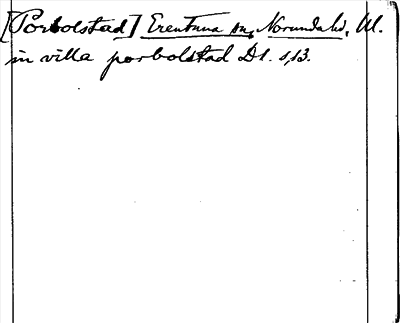 [Porbolstad] Erentuna sn, Norunda hd, Ul.
in villa porbolstad DS. s, 13.